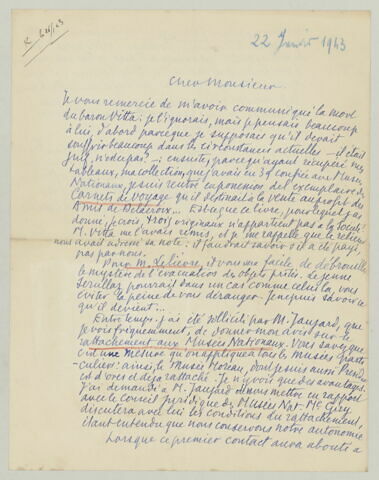 22 Janvier 1943
Cher Monsieur
Je vous remercie de m'avoir communiqué la mort
du baron Vitta : je l'ignorais, mais je pensais beaucoup
à lui, d'abord parce que je supposais qu'il devait
souffrir beaucoup dans les circonstances actuelles — il était
juif, n'est-ce pas? — ; ensuite, parce qu'ayant récupéré mes
tableaux, ma collection, que j'avais en 39 confiée aux Musées
Nationaux, je suis rentré en possession des exemplaires des
Carnets de voyage qu'il destinait à la vente au profit des
Amis de Delacroix... Est-ce que ce livre, pour lequel j'ai
donné, je crois, bois originaux n'appartient pas à la Société?
M. Vitta me l'avait remis, et je me rappelle que le relieur
nous avait adressé sa note : il faudrait savoir s'il a été payé,
pas par nous.
Pour M. Lelièvre, il vous sera facile de débrouiller
le mystère de l'évacuation des objets prêtés. Le jeune
Serullaz pourrait dans un cas comme celui-là, vous
éviter la peine de vous déranger. Je ne puis savoir ce
qu'il devient...
Entre temps, j'ai été sollicité par M. Jaujard, que
je vois fréquemment, de donner mon avis sur le
rattachement aux Musées Nationaux. Vous savez que
c'est une mesure qu'on applique à tous les musées
: ainsi, le Musée Moreau, dont je suis aussi
est d'ores et déjà rattaché. Je n'y vois que des avantages
J'ai demandé à M. Jaujard de nous mettre en rapport
avec le conseil juridique des Musées Nat. Me
discutera avec lui les conditions du rattachement,
étant entendu que nous conservons notre autonomie.
Lorsque ce premier contact aura abouti à